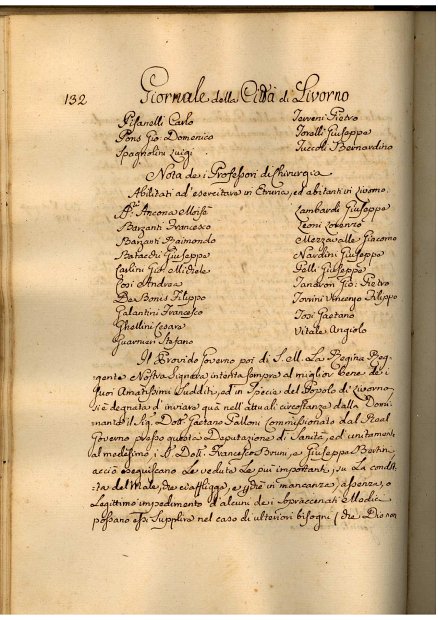 132 Giornale della Città di Livorno
Pisanelli Carlo Terreni Pietro
Pons Gio: Domenico Torelli Giuseppe
Spagnolini Luigi Tuccoli Bernardino
Nota de i Professori di Chirurgia
Abilitati ad esercitare in Etruria, ed abitanti in Livorno.
Ancona Moisè Lambardi Giuseppe
Barzanti Francesco Leoni Lorenzo
Barzanti Raimondo Mezzavalle Giacomo
Giuseppe Nardini Giuseppe
Carlini Gio: Michele Pelli Giuseppe
Cosi Andrea Gio: Pietro
De Bonis Filippo Torrini Vincenzo Filippo
Galantini Francesco Tosi Gaetano
Ghellini Cesare Vitale Angiolo
Stefano
Il Provido Governo poi di S. M. La Regina Reg-
gente Nostra Signora intenta sempre al miglior bene de i
suoi Amatissimi Sudditi, ed in specie del Popolo di Livorno
si è degnata d'inviare quà nell'attuali circostanze dalla Domi-
nante il Sig. Dott. Gaetano Palloni Commissionato dal Real
Governo presso questa Deputazione di Sanità, ed unitamente
al medesimo, i Dott. Francesco Bruni, e Giuseppe Bertini,
acciò eseguiscano Le vedute Le più importanti, su La
del Male, che ci affligga, e in mancanza, assenza, o
Legittimo impedimento d'alcuni de i sopraccenati Medici
possano essi Supplire nel caso di ulteriori bisogni (che Dio non